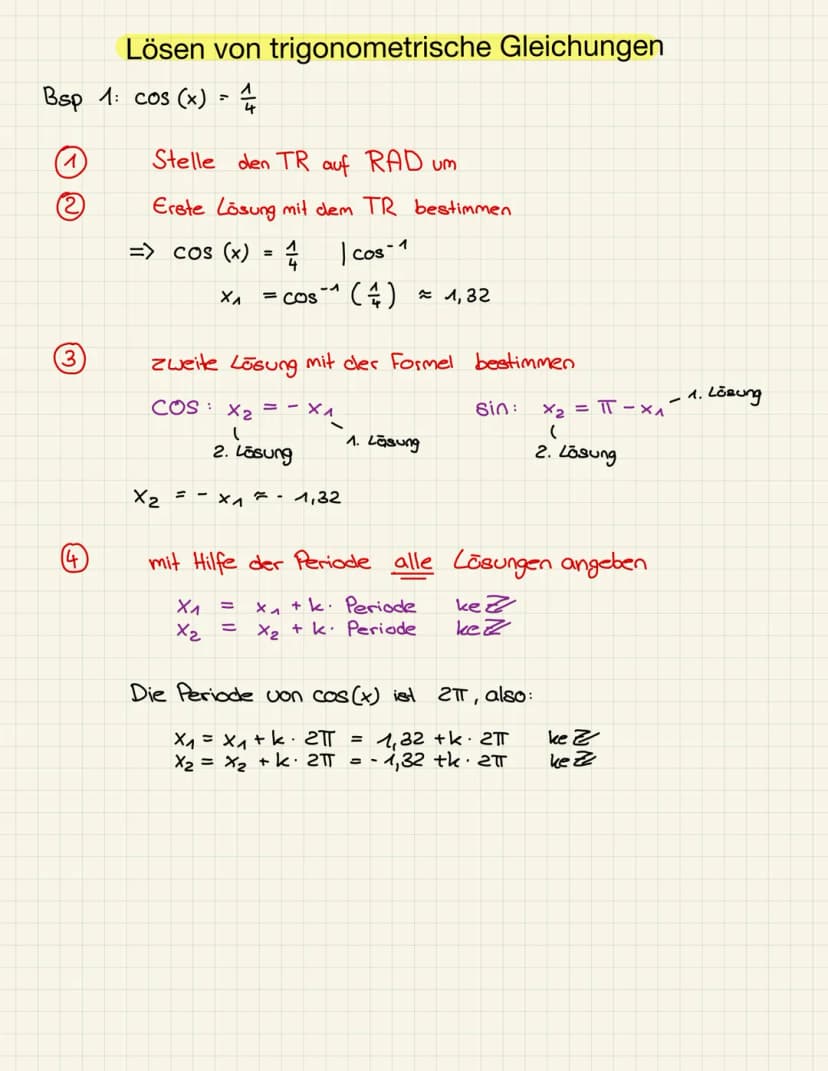 Lösen von trigonometrische Gleichungen
Bsp 1: cos (x) = 1/4
① Stelle den TR auf RAD um
② Erste Lösung mit dem TR bestimmen
=> cos (x) = 1/4 | cos⁻¹
x₁ = cos⁻¹ (1/4) ≈ 1,32
③ zweite Lösung mit der Formel bestimmen
COS: x₂ = - x₁ sin: x₂ = π - x₁ - 1. Lösung
2. Lösung 1. Lösung 2. Lösung
x₂ = - x₁ ≈ - 1,32
④ mit Hilfe der Periode alle Lösungen angeben
x₁ = x₁ + k · Periode k∈ℤ
x₂ = x₂ + k · Periode k∈ℤ
Die Periode von cos(x) ist 2π, also:
x₁ = x₁ + k · 2π = 1,32 + k · 2π k∈ℤ
x₂ = x₂ + k · 2π = - 1,32 + k · 2π k∈ℤ